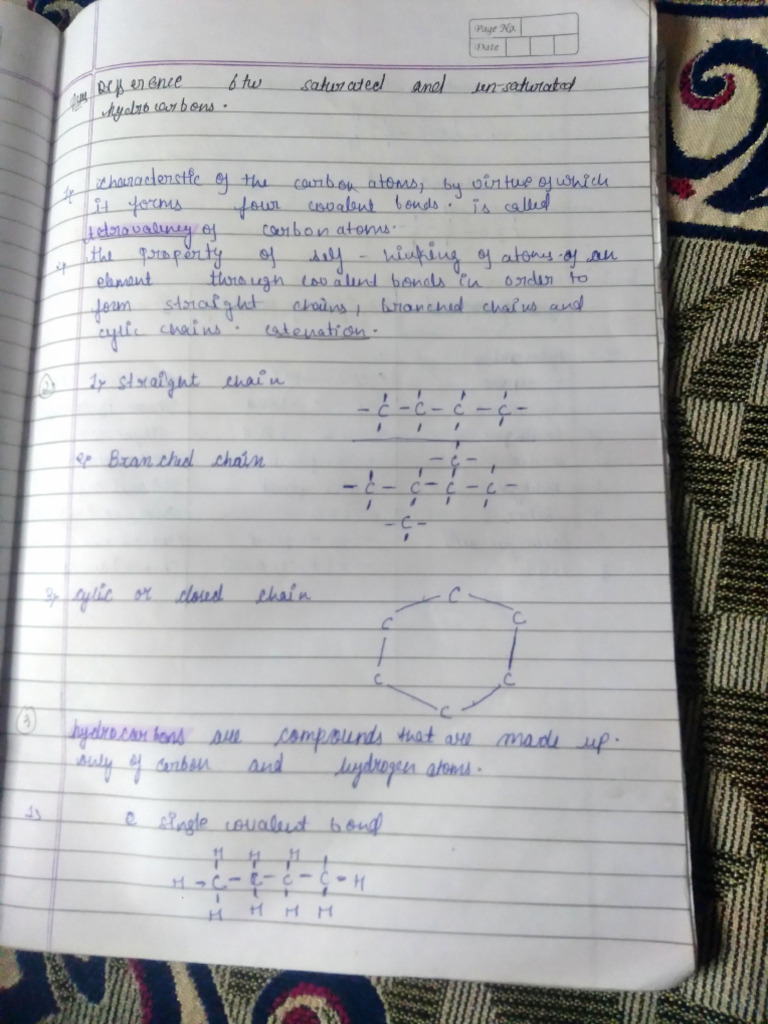 Page No.
Date
Difference btw saturated and un-saturated
hydrocarbons.
1. characterstic of the carbon atoms, by virtue of which
it forms four covalent bonds. is called
tetravalency of carbon atoms.
the property of self-linking of atoms of an
element through covalent bonds in order to
form straight chains, branched chains and
cyclic chains. catenation.
2 1. straight chain
- C - C - C - C -
2. Branched chain
- C -
- C - C - C - C -
- C -
3. cylic or closed chain
C
C C
C C
C
3
hydrocarbons are compounds that are made up.
only of carbon and hydrogen atoms.
1. C single covalent bond
H H H
H - C - C - C - C - H
H H H H